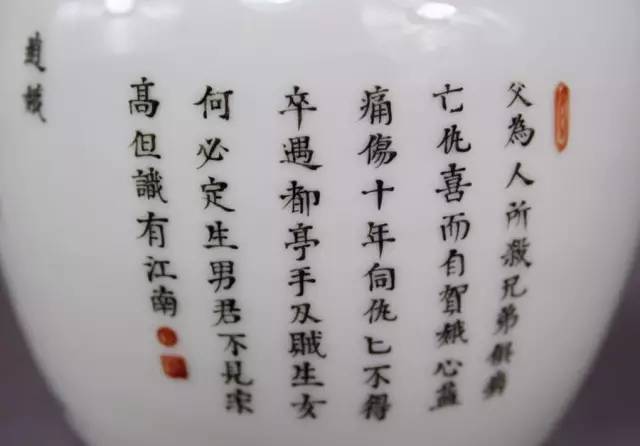 父為人所殺兄弟俱病
亡仇喜而自賀娥心益
痛傷十年伺仇匕不得
卒遇都亭手刃賊生女
何必定生男君不見宋
高但識有江南
趙娥